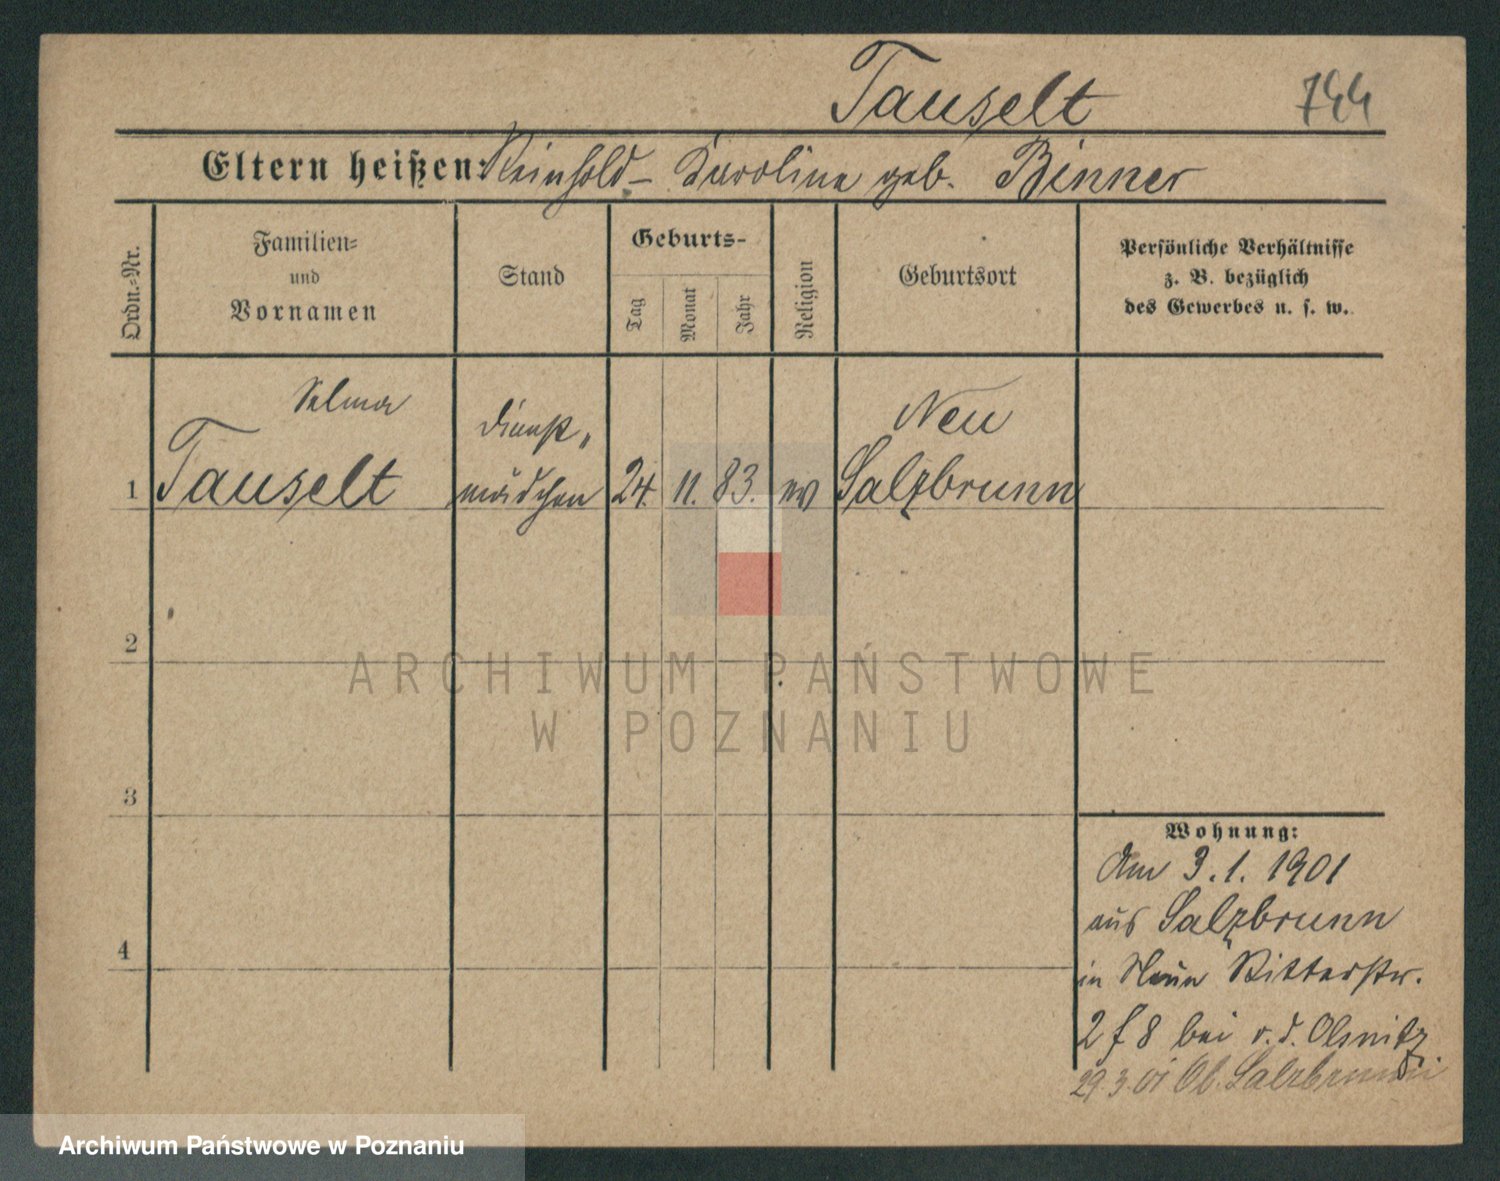 Tauselt 744
Eltern heißen: Reinhold - Karoline geb. Binner
Ordn.-Nr.
Familien-
und
Vornamen
Stand
Geburts-
Tag
Monat
Jahr
Religion
Geburtsort
Persönliche Verhältnisse
z. B. bezüglich
des Gewerbes u. s. w.
Selma
Dienst„
Neu
1 Tauselt mädchen 24. 11. 83. ev Salzbrunn
2
3
4
Wohnung:
Am 3.1.1901
aus Salzbrunn
in Neue Ritterstr.
2 f 8 bei v. d. Olsnitz
29.3.01 Ob. Salzbrunn
ARCHIWUM PAŃSTWOWE
W POZNANIU
Archiwum Państwowe w Poznaniu